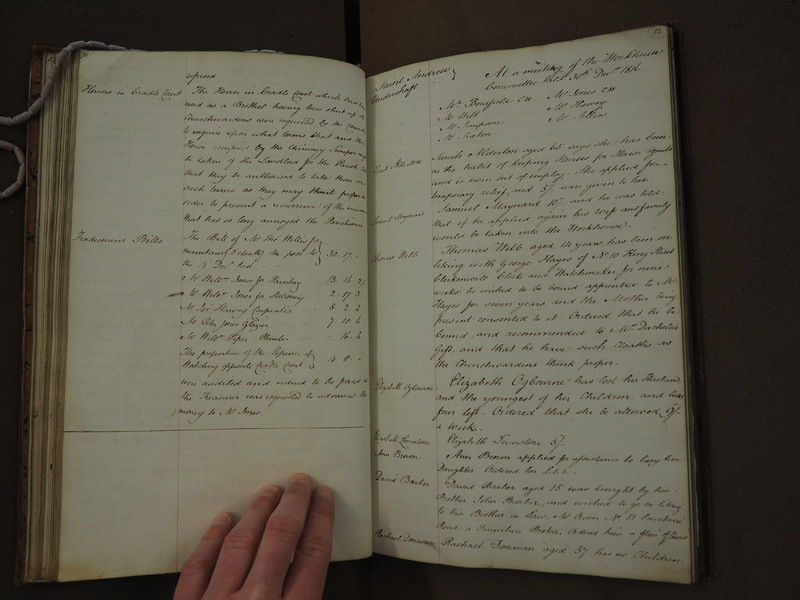 refused
Houses in Cradle Court
The House in Cradle Court which has been
used as a Brothel having been shut up the
Churchwardens were requested by the Committee
to inquire upon what terms that and the
House occupied by the Chimney Sweeper
be taken of the Landlord for the Parish
that they be authorised to take them on
such terms as they may think proper in
order to prevent a recurrence of the
that has so long annoyed the Parishioners
Tradesmens Bills
The Bill of Mr Thos Willis for
maintaining & clothing the poor to
the 4 Decr last
30. 17. -
Mr Willm Jones for Printing 13. 16. 2
Mr Willm Jones for Stationery 2. 17. 3
Mr Jos Harvey Carpenter 5. 2. 2
Mr Peter Jones Glazier 7. 10. 6
Mr Willm Piper Plumber - 16. 6
The proportion of the Expence of
Watching opposite Cradle Court
4. 0. -
were audited and ordered to be paid &
the Treasurer was requested to advance the
money to Mr Jones.
72
Saint Andrew
Undershaft
At a meeting of the Workhouse
Committee held 30th Decr 1816
Mr Jones CW
Mr Harvey
Mr Webb
Mr Simpson
Mr Sexton
Sarah Alderton
Sarah Alderton aged 65 says she has been
in the habit of keeping Houses for House Agents
and is now out of employ. She applied for
temporary relief, and 5/ were given to her
Samuel Maynard
Samuel Maynard 10/. and he was told
that if he applied again his wife and family
would be taken into the Workhouse.
Thomas Webb
Thomas Webb aged 14 years, has been on
liking with George Hayes of No 10 King Street
Clerkenwell Clock and Watchmaker for nine
weeks, he wished to be bound apprentice to Mr
Hayes for seven years and the Mother being
present consented to it. Ordered that he be
bound, and recommended to Mr Datchelor's
Gift, and that he have such Cloaths as
the Churchwardens think proper.
Elizabeth Ogbourne
Elizabeth Ogbourne has lost her Husband
and the youngest of her Children, and has
four left. Ordered that she be allowed 9/.
a week.
Elizabeth Livestone
Elizabeth Livestone 5/.
Ann Brown
Ann Brown applied for assistance to bury her
Daughter. Ordered her
David Barber
David Barber aged 15 was brought by his
Brother John Barber, and wished to go on liking
to his Brother in Law, Mr Owen No 51
Road a Furniture Broker, Ordered him a
Rachael Donawan
Rachael Donawan aged 57 has no Children